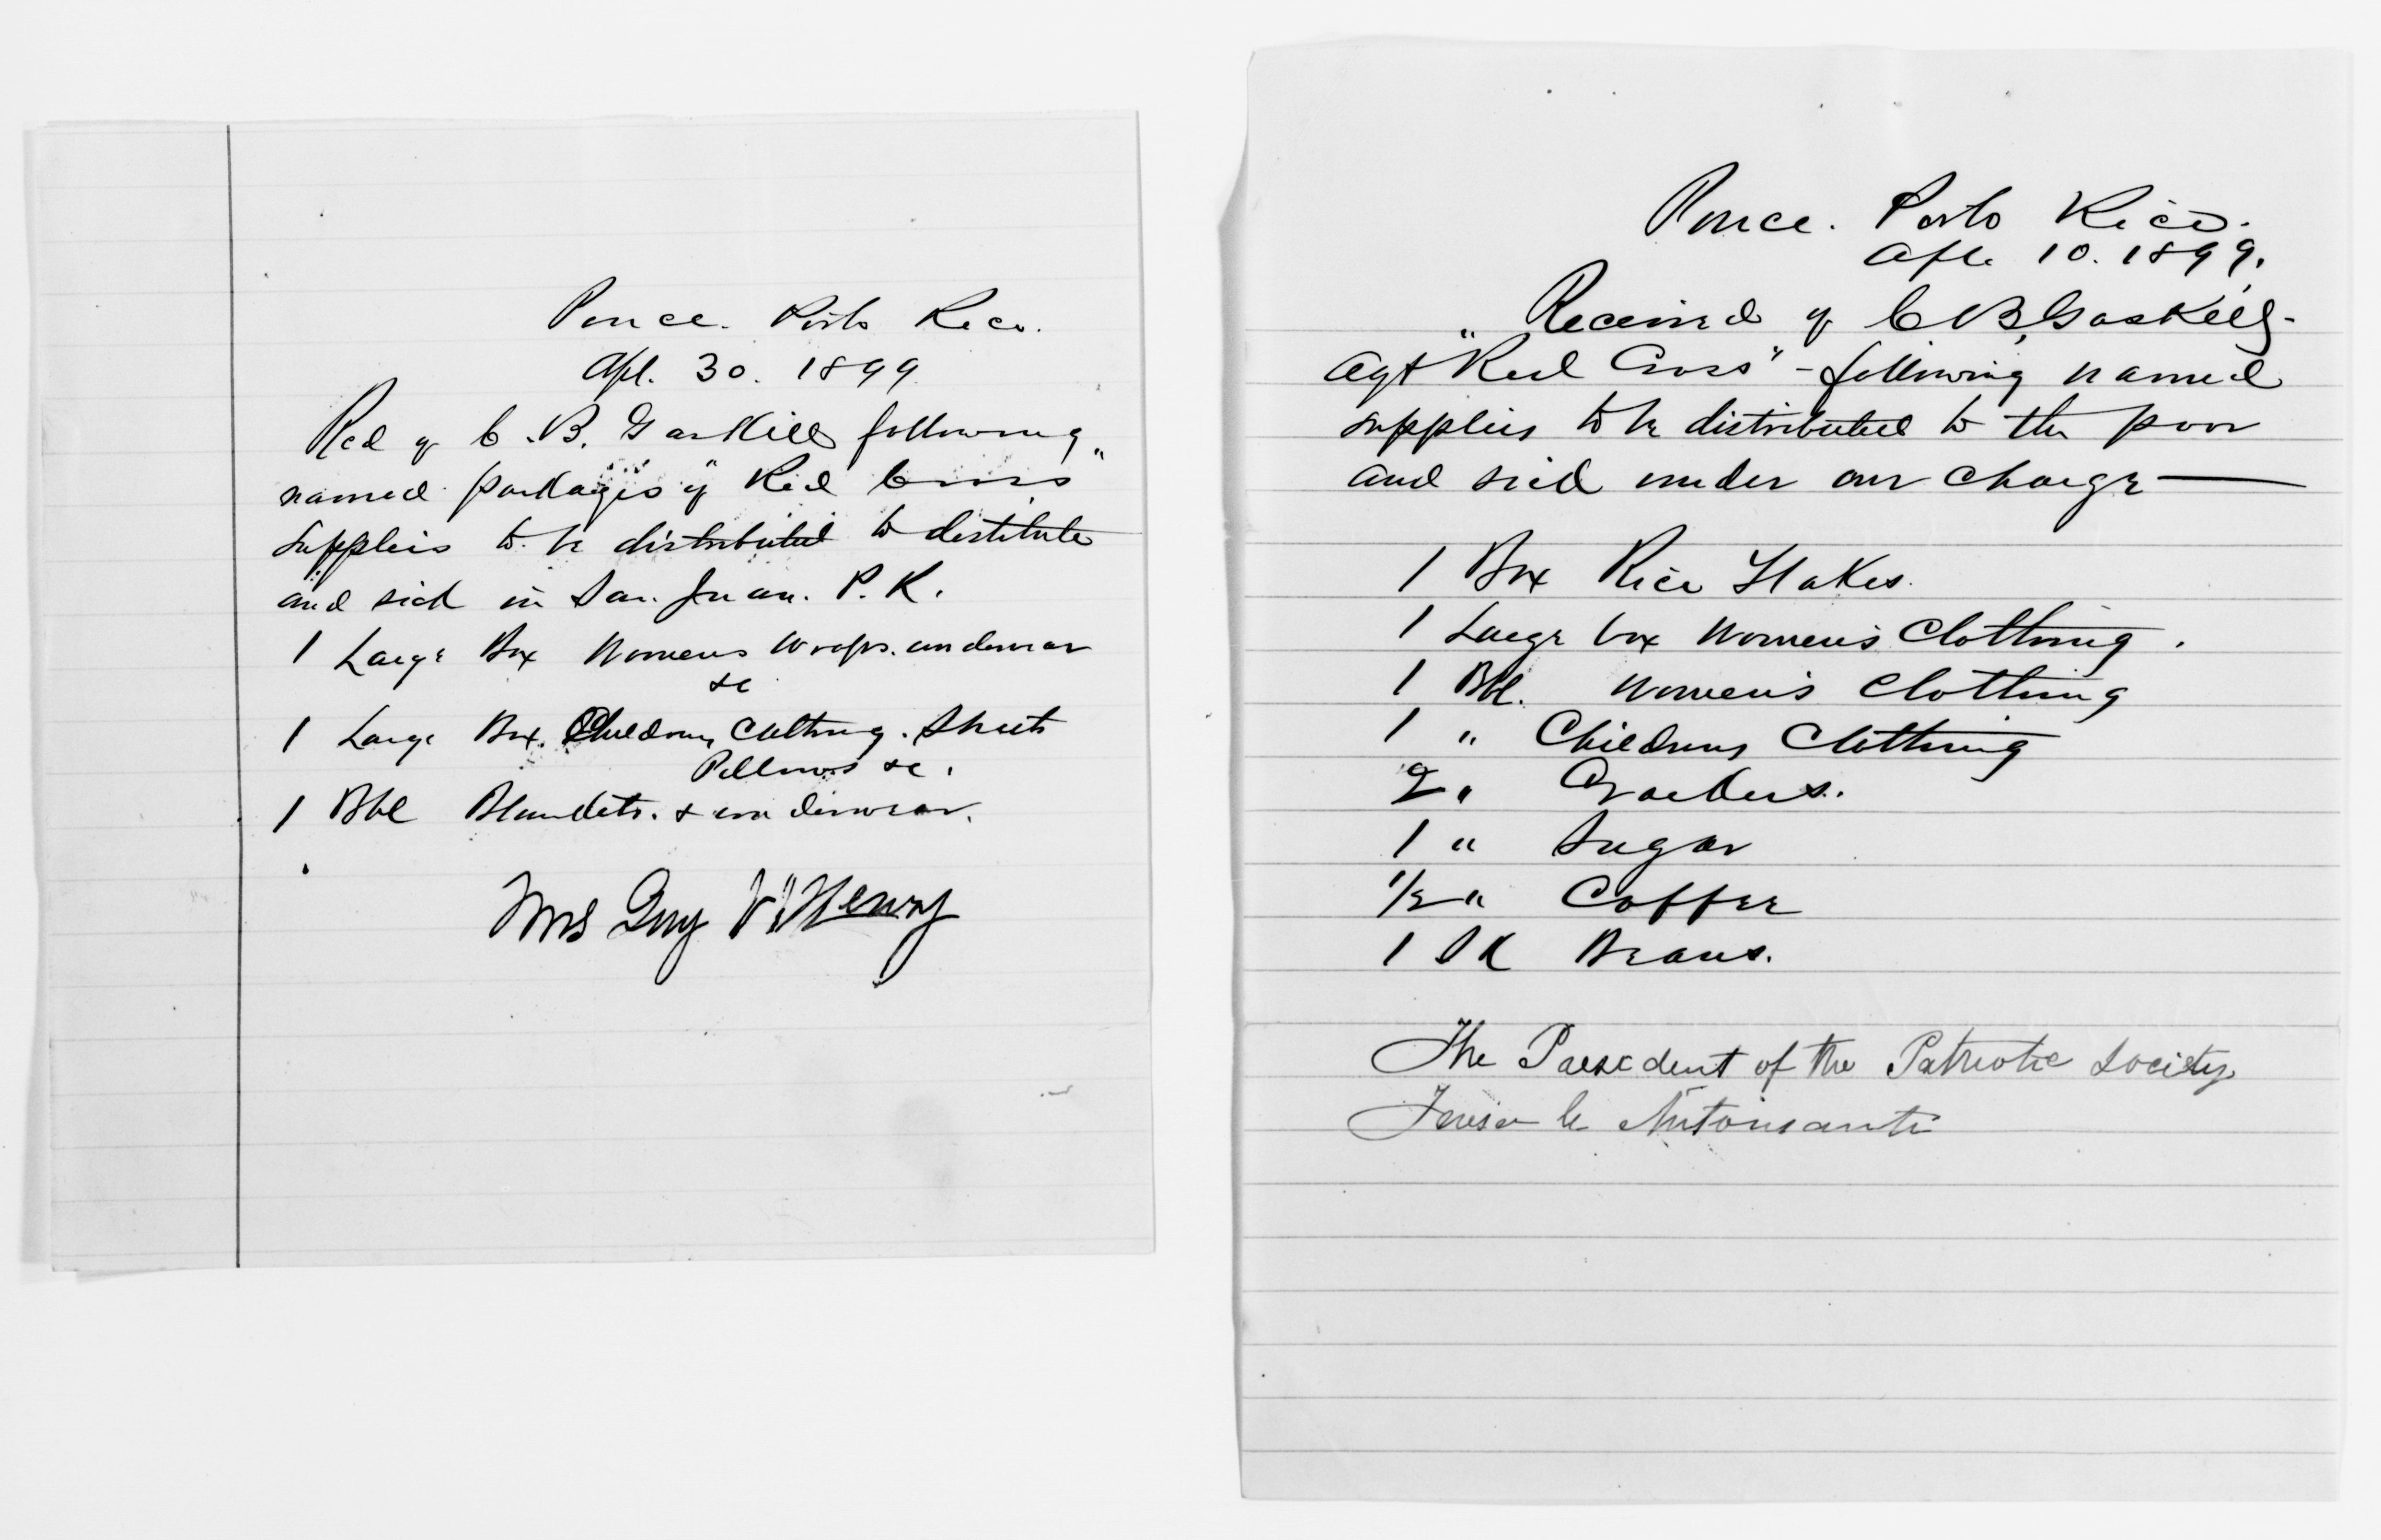 Ponce. Porto Rico.
Apl. 30. 1899
Recd of C. B. Gaskill following
named packages of "Red Cross"
supplies to be distributed to destitute
and sick in San Juan. P. R.
1 Large Box Womens Wraps. underwear
&c
1 Large Box. Childrens Clothing. Sheets
Pillows &c.
1 Bbl Blankets. & underwear.
Mrs Guy V. Henry
Ponce. Porto Rico.
Apl. 10. 1899.
Received of C B, Gaskill-
Agt "Red Cross" - following named
supplies to be distributed to the poor
and sick under our charge —
1 Box Rice Flakes.
1 Large box Women's Clothing.
1 Bbl. Women's Clothing
1 " Childrens Clothing
2 " Crackers.
1 " Sugar
1/2 " Coffee
1 SK Beans.
The President of the Patriotic Society
Antonsanti